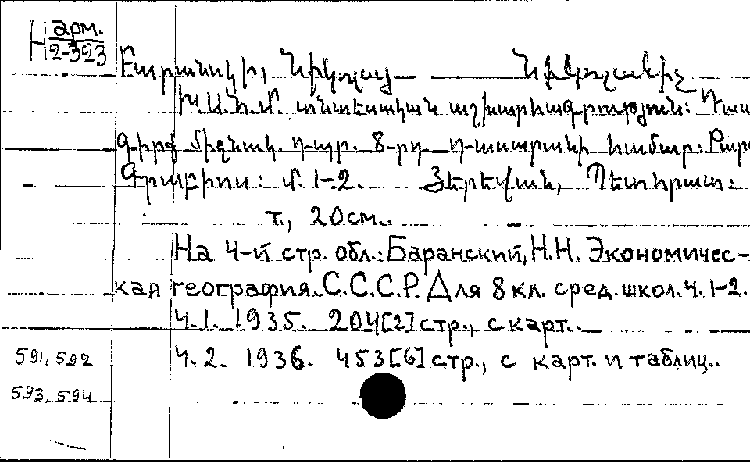 Н арм. 2-323
Բարանսկի, Նիկոլայ Նիկոլաևիչ
Խ.Ս.Հ.Մ. տնտեսական աշխարհագրություն: Դաս
գիրք միջնակ. դպր. 8-րդ դասարանի համար: Բարգ
մ. 1-2. Յերեվան, Պետհրատ:
т., 20 см.
На 4-й стр. обл.: Баранский, Н.Н. Экономичес-
кая география С.С.С.Р. Для 8 кл. сред. школ. ч. 1-2.
Ч. 1. 1935. 204[2] стр., с карт.
591, 592 Ч. 2. 1936. 453[6] стр., с карт. и таблиц.
593, 594